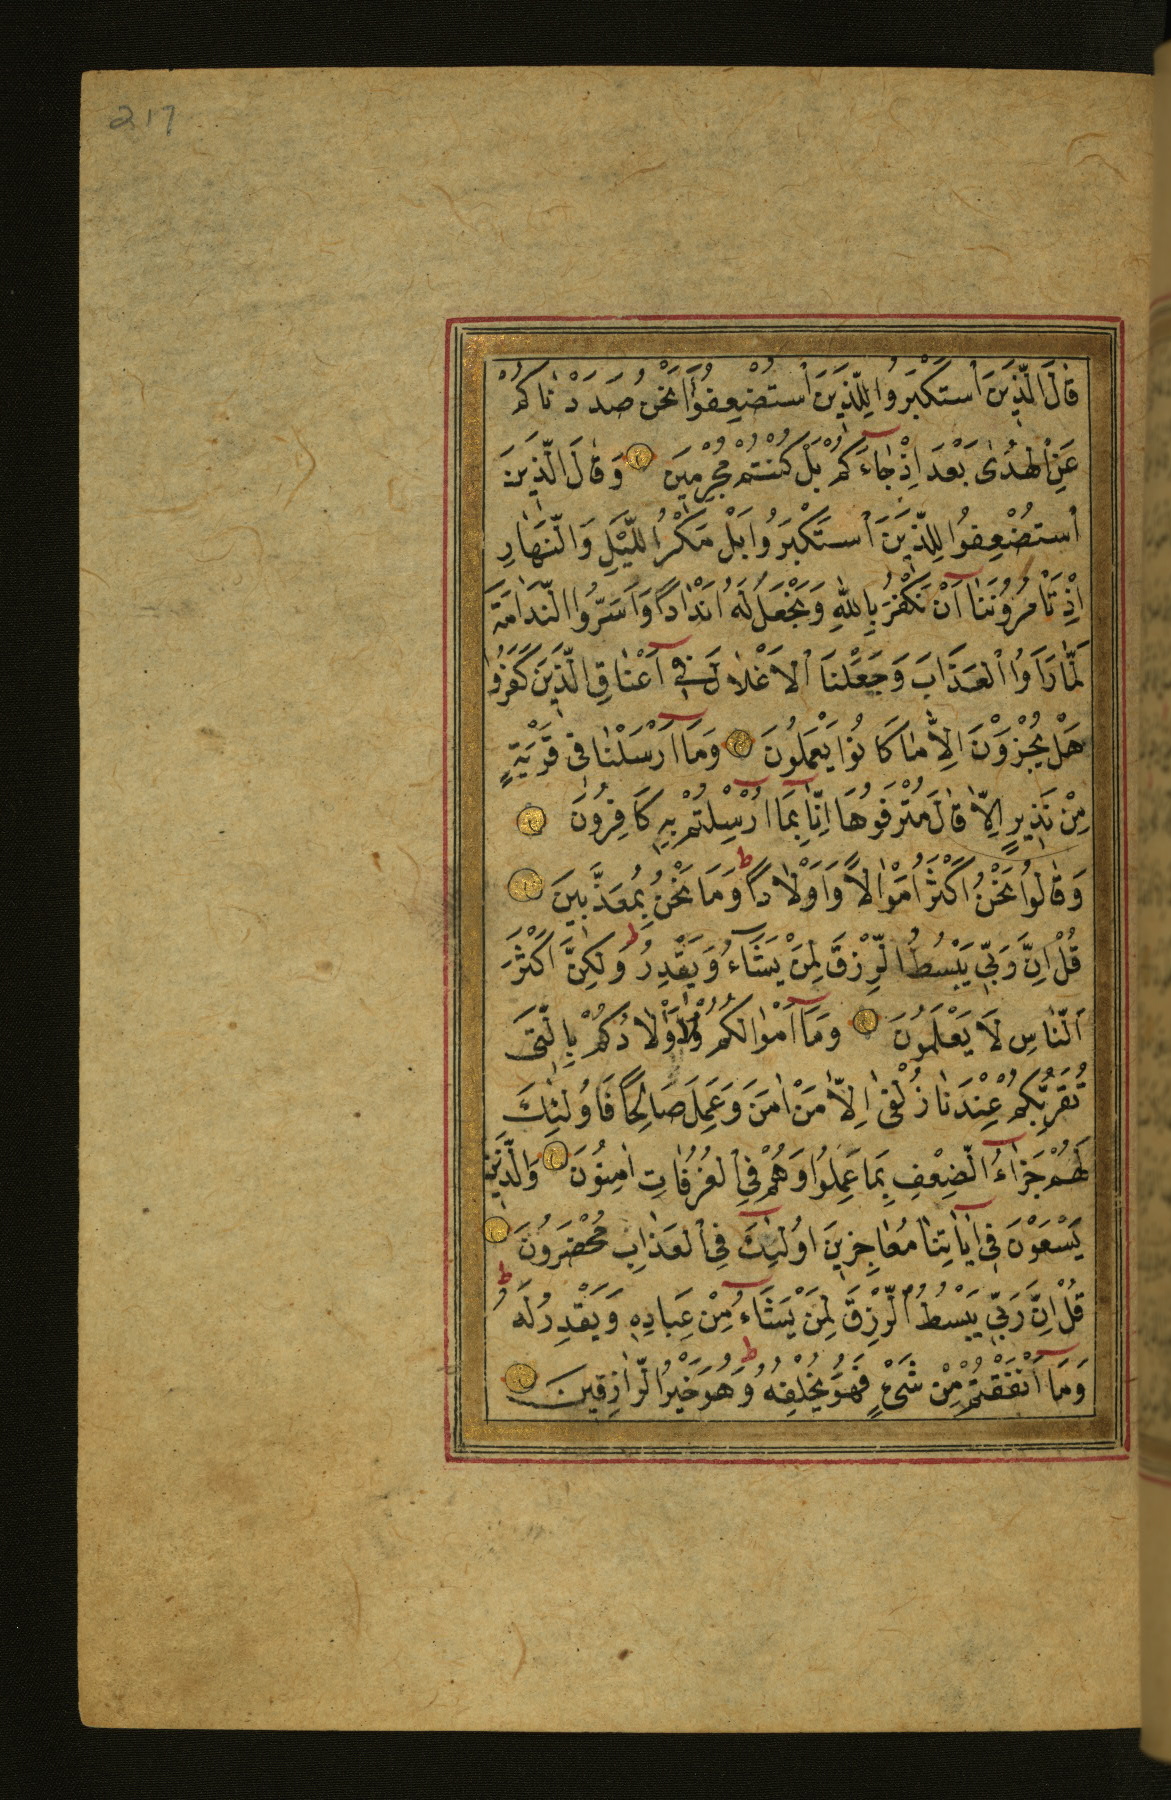 217
قَالَ الَّذِينَ اسْتَكْبَرُوا لِلَّذِينَ اسْتُضْعِفُوا اَنَحْنُ صَدَدْنَاكُمْ
عَنِ الْهُدٰى بَعْدَ اِذْ جَاءَكُمْ بَلْ كُنْتُمْ مُجْرِمِينَ وَقَالَ الَّذِينَ
اسْتُضْعِفُوا لِلَّذِينَ اسْتَكْبَرُوا بَلْ مَكْرُ اللَّيْلِ وَالنَّهَارِ
اِذْ تَأْمُرُونَنَا اَنْ نَكْفُرَ بِاللّٰهِ وَنَجْعَلَ لَهُ اَنْدَادًا وَاَسَرُّوا النَّدَامَةَ
لَمَّا رَاَوُا الْعَذَابَ وَجَعَلْنَا الْاَغْلَالَ فِي اَعْنَاقِ الَّذِينَ كَفَرُوا
هَلْ يُجْزَوْنَ اِلَّا مَا كَانُوا يَعْمَلُونَ وَمَا اَرْسَلْنَا فِي قَرْيَةٍ
مِنْ نَذِيرٍ اِلَّا قَالَ مُتْرَفُوهَا اِنَّا بِمَا اُرْسِلْتُمْ بِهِ كَافِرُونَ
وَقَالُوا نَحْنُ اَكْثَرُ اَمْوَالًا وَاَوْلَادًا ط وَمَا نَحْنُ بِمُعَذَّبِينَ
قُلْ اِنَّ رَبِّي يَبْسُطُ الرِّزْقَ لِمَنْ يَشَاءُ وَيَقْدِرُ ط وَلٰكِنَّ اَكْثَرَ
النَّاسِ لَا يَعْلَمُونَ وَمَا اَمْوَالُكُمْ وَلَا اَوْلَادُكُمْ بِالَّتِي
تُقَرِّبُكُمْ عِنْدَنَا زُلْفٰى اِلَّا مَنْ اٰمَنَ وَعَمِلَ صَالِحًا فَاُولٰئِكَ
لَهُمْ جَزَاءُ الضِّعْفِ بِمَا عَمِلُوا وَهُمْ فِي الْغُرُفَاتِ اٰمِنُونَ وَالَّذِينَ
يَسْعَوْنَ فِي اٰيَاتِنَا مُعَاجِزِينَ اُولٰئِكَ فِي الْعَذَابِ مُحْضَرُونَ
قُلْ اِنَّ رَبِّي يَبْسُطُ الرِّزْقَ لِمَنْ يَشَاءُ مِنْ عِبَادِهِ وَيَقْدِرُ لَهُ ط
وَمَا اَنْفَقْتُمْ مِنْ شَيْءٍ فَهُوَ يُخْلِفُهُ ط وَهُوَ خَيْرُ الرَّازِقِينَ